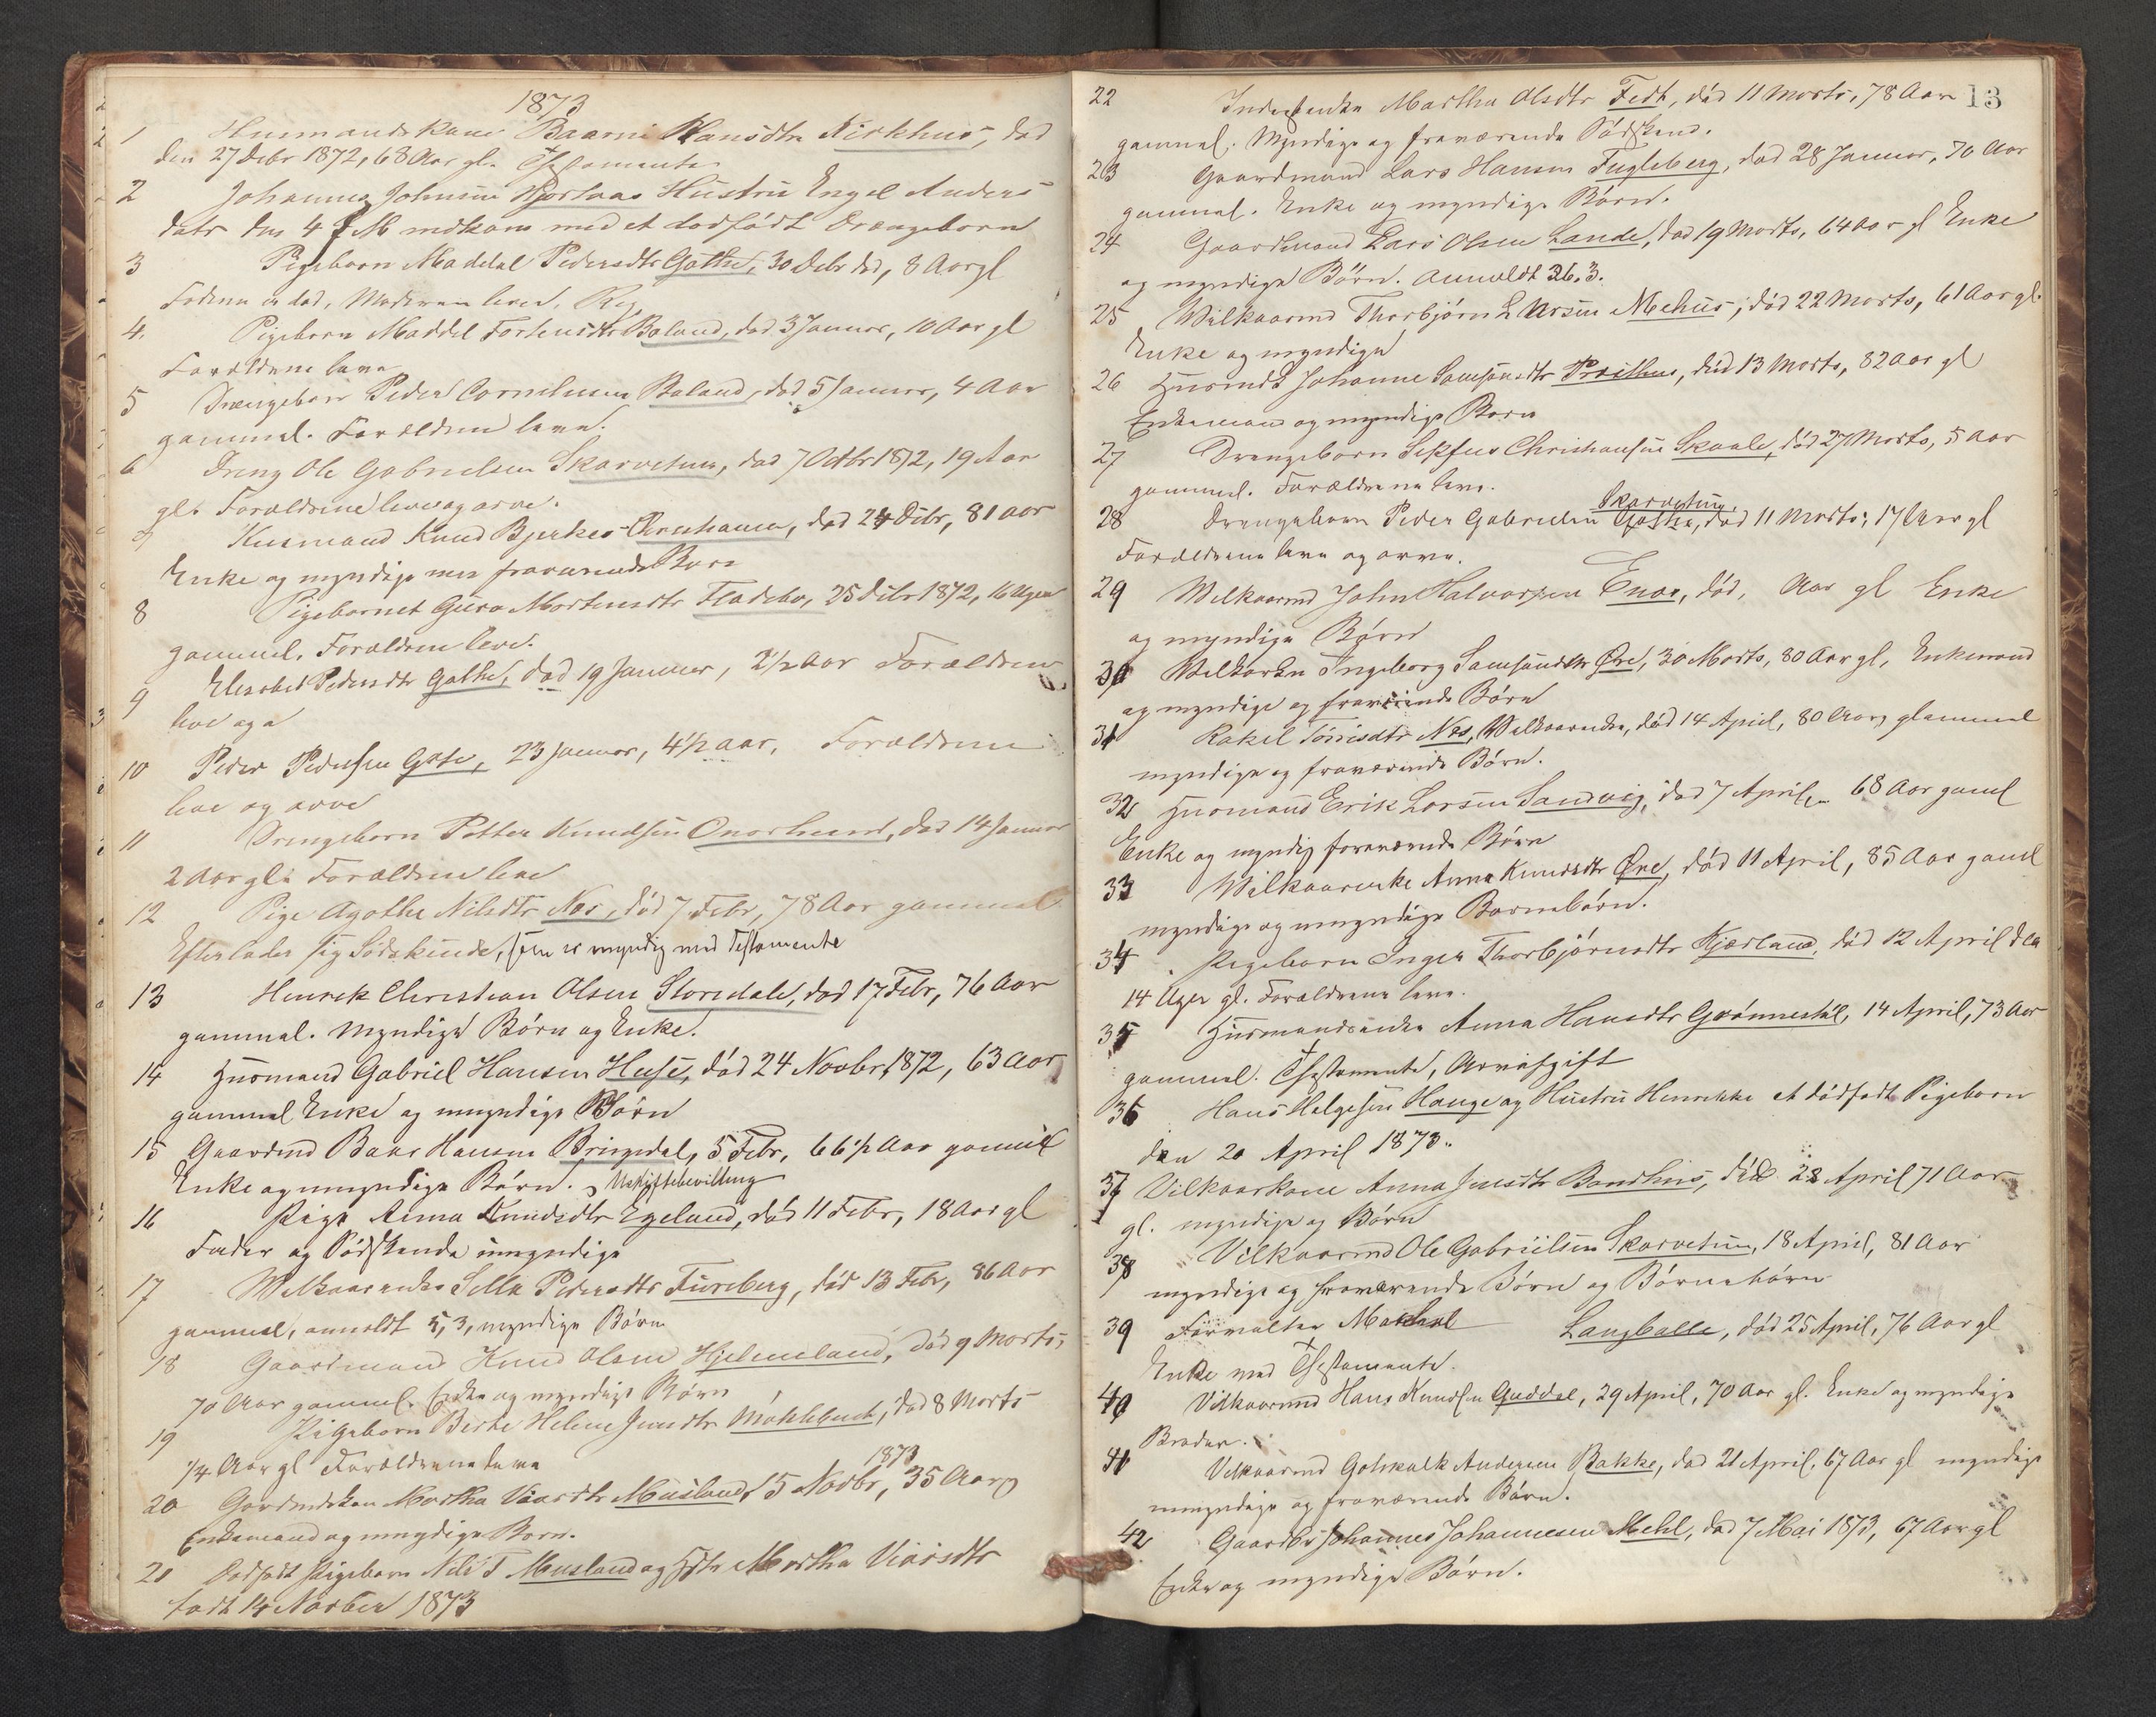 1873
1 Huusmandskone Baarni Hansdtr Kirkhus, død
den 27 Debr 1872, 68 Aar gl. Testamente
2 Johannes Johnsen Hustru Engel Anders
datr den 4 nedkom med et dødfødt Drengebarn
3 Pigebarn Maddal Pedersdtr Gøthe, 30 Debr død, 8 Aar gl
Faderen er død, Moderen lever.
4. Pigebarn Maddel Tortensdtr Boland, død 3 Januar, 10 Aar gl
Forældrene leve
5 Drengebarn Peder Cornelius Boland, død 5 Januar, 4 Aar
gammel. Forældrene leve.
6 Dreng Ole Gabrielsen Skarvetun, død 7 Octbr 1872, 19 Aar
gl. Forældrene leve og arve.
7 Husmand Knud Bjerkes, død 24 Debr, 81 aar
Enke og myndige men fraværende Børn
8 Pigebarnet Guro Mortensdtr Fladebø, 25 Debr 1872, 16 Uger
gammel. Forældrene leve.
9 Elisabet Pedersdtr Gøthe, død 19 Januar, 2½ Aar Forældrene
leve og a
10 Peder Pedersen Gøte, 23 Januar, 4½ aar, Forældrene
leve og arve
11 Drengebarn Petter Knudsen, død 14 Januar
2 Aar gl. Forældrene leve
12 Pige Agathe Nilsdtr Nes, død 7 Febr, 78 Aar gammel
Efterlader sig Sødskende, som er myndig med Testamente
13 Henrik Christian Olsen Storedale, død 17 Febr, 76 Aar
gammel. Myndige Børn og Enke.
14 Husmand Gabriel Hansen Huse, død 24 Novbr, 1872, 63 Aar
gammel Enke og umyndige Børn
15 Gaardmd Baar Hansen Bringedal, 5 Febr, 66½ Aar gammel
Enke og umyndige Børn. Uskiftebevilling
16 Pige Anna Knudsdtr Egeland, død 11 Febr, 18 Aar gl
Fader og Sødskende umyndige
17 Welkaarenke Sella Pedersdtr Fureberg, død 13 Febr, 86 Aar
gammel, anmeldt 5,3, myndige Børn
18 Gaardmand Knud Olsen Hjelmeland, død 9 Marts,
70 Aar gammel. Enke og myndige Børn
19 Pigebarn Berte Helene Jensdtr Møklebust, død 8 Marts
¼ Aar gl Forældrene leve
1873
20 Gardmdskon Martha Viarsdtr Musland, 15 Novbr, 35 Aar
Enkemand og umyndige Børn.
21 Dødfødt Pigebarn Nils T Musland og Hstr Martha Viarsdtr
født 14 Novber 1873
13
22 Martha Olsdtr Fedt, død 11 Marts, 78 Aar
gammel. Myndige og fraværende Sødskend.
23 Gaardmand Lars Hansen Fugleberg, død 28 Januar, 70 Aar
gammel. Enke og myndige Børn.
24 Gaardmand Lars Olsen Lande, død 19 Marts, 64 Aar gl Enke
og myndige Børn. Anmeldt 26.3.
25 Wilkaarmd Thorbjørn Larsen Mehus, død 22 Marts, 61 Aar gl.
Enke og myndige
26 Johanne Samsonsdtr, død 13 Marts, 82 aar gl
Enkemand og myndige Børn
27 Drengebarn Sekfus Christiansen Skaale, død 27 Marts, 5 Aar
gammel. Forældrene leve.
28 Drengebarn Peder Gabrielsen Skarvetun, død 11 Marts, 17 Aar gl
Forældrene leve og arve.
29 Welkaarmd John Halvorsen Enæs, død, Aar gl Enke
og myndige Børn
30 Ingeborg Samsonsdtr Øre, 30 Marts, 80 Aar gl, Enkemand
og myndige og fraværende Børn
31 Rakel Torrisdtr Nes, Welkaarenke, død 14 April, 80 Aar gammel
myndige og fraværende Børn.
32 Husmand Erik Larsen Sandvig, død 7 April, 68 Aar gamel
Enke og myndig fraværende Børn
33 Wilkaarenke Anna Knudsdtr Øre, død 11 April, 85 Aar gamel
myndige og umyndige Børnebørn.
34 Pigebarn Inger Thorbjørnsdtr Kjærland, død 12 April
14 Uger gl. Forældrene leve.
35 Husmandsenke Anna Hansdtr Grønnestøl, 14 April, 73 Aar
gammel. Testamente, Arveafgift
36 Hans Helgesen Hauge og Hustru Henrikke et dødfødt Pigebarn
den 20 April 1873.
37 Vilkaarkone Anna Jensdtr Bondhus, død 22 April 71 Aar
gl. myndige og Børn
38 Vilkaarmd Ole Gabrielsen Skarvetun, 18 April, 81 Aar
myndige og fraværende Børn og Børnebørn
39 Forvalter Langballe, død 25 April, 76 Aar gl
Enke med Testamente.
40 Vilkaarmd Hans Knudsen Guddal, 29 April, 70 Aar gl. Enke og myndige
Brøder.
41 Vilkaarmd Gotskalk Andersen Bakke, død 21 April, 67 Aar gl myndige
umyndige og fraværende Børn.
42 Gaardbr Johannes Johannesen Mehl, død 7 Mai 1873, 67 Aar gl
Enke og myndige Børn.